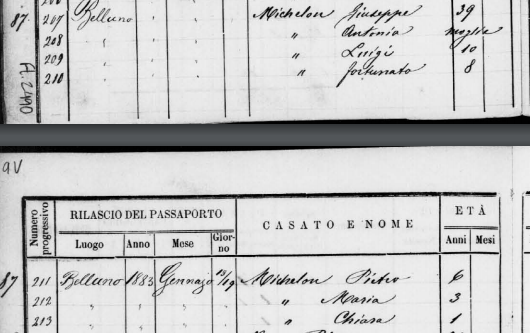 206
87. 207 Belluno " " " Michelon Giuseppe 39
208 " " " " " Antonia moglie
209 " " " " " Luigi 10
210 " " " " " fortunato 8
A.2490
9V
Numero progressivo RILASCIO DEL PASSAPORTO CASATO E NOME ETÀ
Luogo Anno Mese Giorno Anni Mesi
87 211 Belluno 1883 Gennajo 15/19 Michelon Pietro 6
212 " " " " Maria 3
213 " " " " Chiara 1